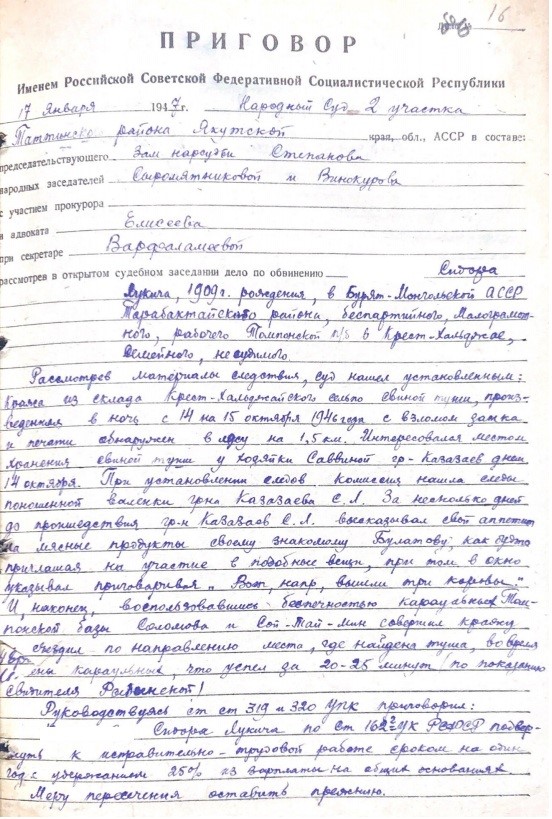 16
ПРИГОВОР
Именем Российской Советской Федеративной Социалистической Республики
17 января 1947 г. Народный Суд 2 участка
района Якутской края, обл., АССР в составе:
председательствующего Зам нарсудьи Степанова
народных заседателей Сыромятниковой и Винокурова
с участием прокурора
и адвоката Елисеева
при секретаре Варфоламеевой
рассмотрев в открытом судебном заседании дело по обвинению
Лукича, 1909 г. рождения, в Бурят-Монгольской АССР
Тарабактайского района, беспартийного, малограмот-
ного, рабочего Томпонской п/б в Крест-Хальджае,
семейного, не судимого.
Рассмотрев материалы следствия, суд нашел установленным:
Кража из склада Крест-Хальджайского сельпо свиной туши, произ-
веденная в ночь с 14 на 15 октября 1946 года с взломом замка
и печати обнаружен в лесу на 1,5 км. Интересовался местом
хранения свиной туши у хозяйки Саввиной гр-н Казазаев днем
14 октября. При установлении следов комиссия нашла следы
поношенной валенки гр-на Казазаева С.Л. За несколько дней
до происшедствия гр-н Казазаев С.Л. высказывал свой аппетит
на мясные продукты своему знакомому Булатову, как будто
приглашая на участие в подобные вещи, при том в окно
указывал приговаривая „Вот, напр, вышли три коровы."
И, наконец, воспользовавшись беспечностью караульных Том-
понской базы Соломова и Сой-Тай-Мин совершил кражу
и сходил по направлению места, где найдена туша, во время
караульных, что успел за 20-25 минут /по показанию
свидетеля
Руководствуясь ст ст 319 и 320 УПК приговорил:
Лукича по Ст 162 УК РСФСР подвер-
гнуть к исправительно-трудовой работе сроком на один
год с удержанием 25% из зарплаты на общих основаниях.
Меру пересечения оставить прежнию.